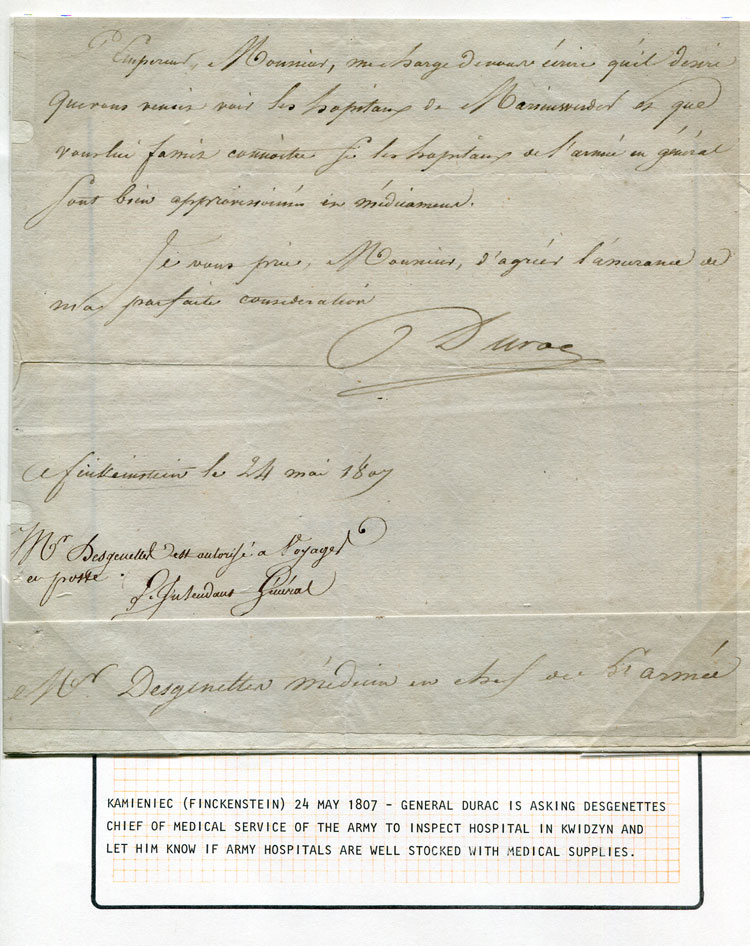 L'Empereur, Monsieur, me charge de vous écrire qu'il desire
que vous veniez voir les hopitaux de Marienwerder et que
vous lui fassiez connoitre si les hopitaux de l'armée en général
sont bien approvisionnés en médicamens.
Je vous prie, Monsieur, d'agréer l'assurance de
ma parfaite consideration
Duroc
a finkeinstein le 24 mai 1807
Mr Desgenettes est autorisé a Voyager
en poste.
L'Intendant Général
Mr. Desgenettes médecin en chef de l'armée
KAMIENIEC (FINCKENSTEIN) 24 MAY 1807 - GENERAL DURAC IS ASKING DESGENETTES
CHIEF OF MEDICAL SERVICE OF THE ARMY TO INSPECT HOSPITAL IN KWIDZYN AND
LET HIM KNOW IF ARMY HOSPITALS ARE WELL STOCKED WITH MEDICAL SUPPLIES.